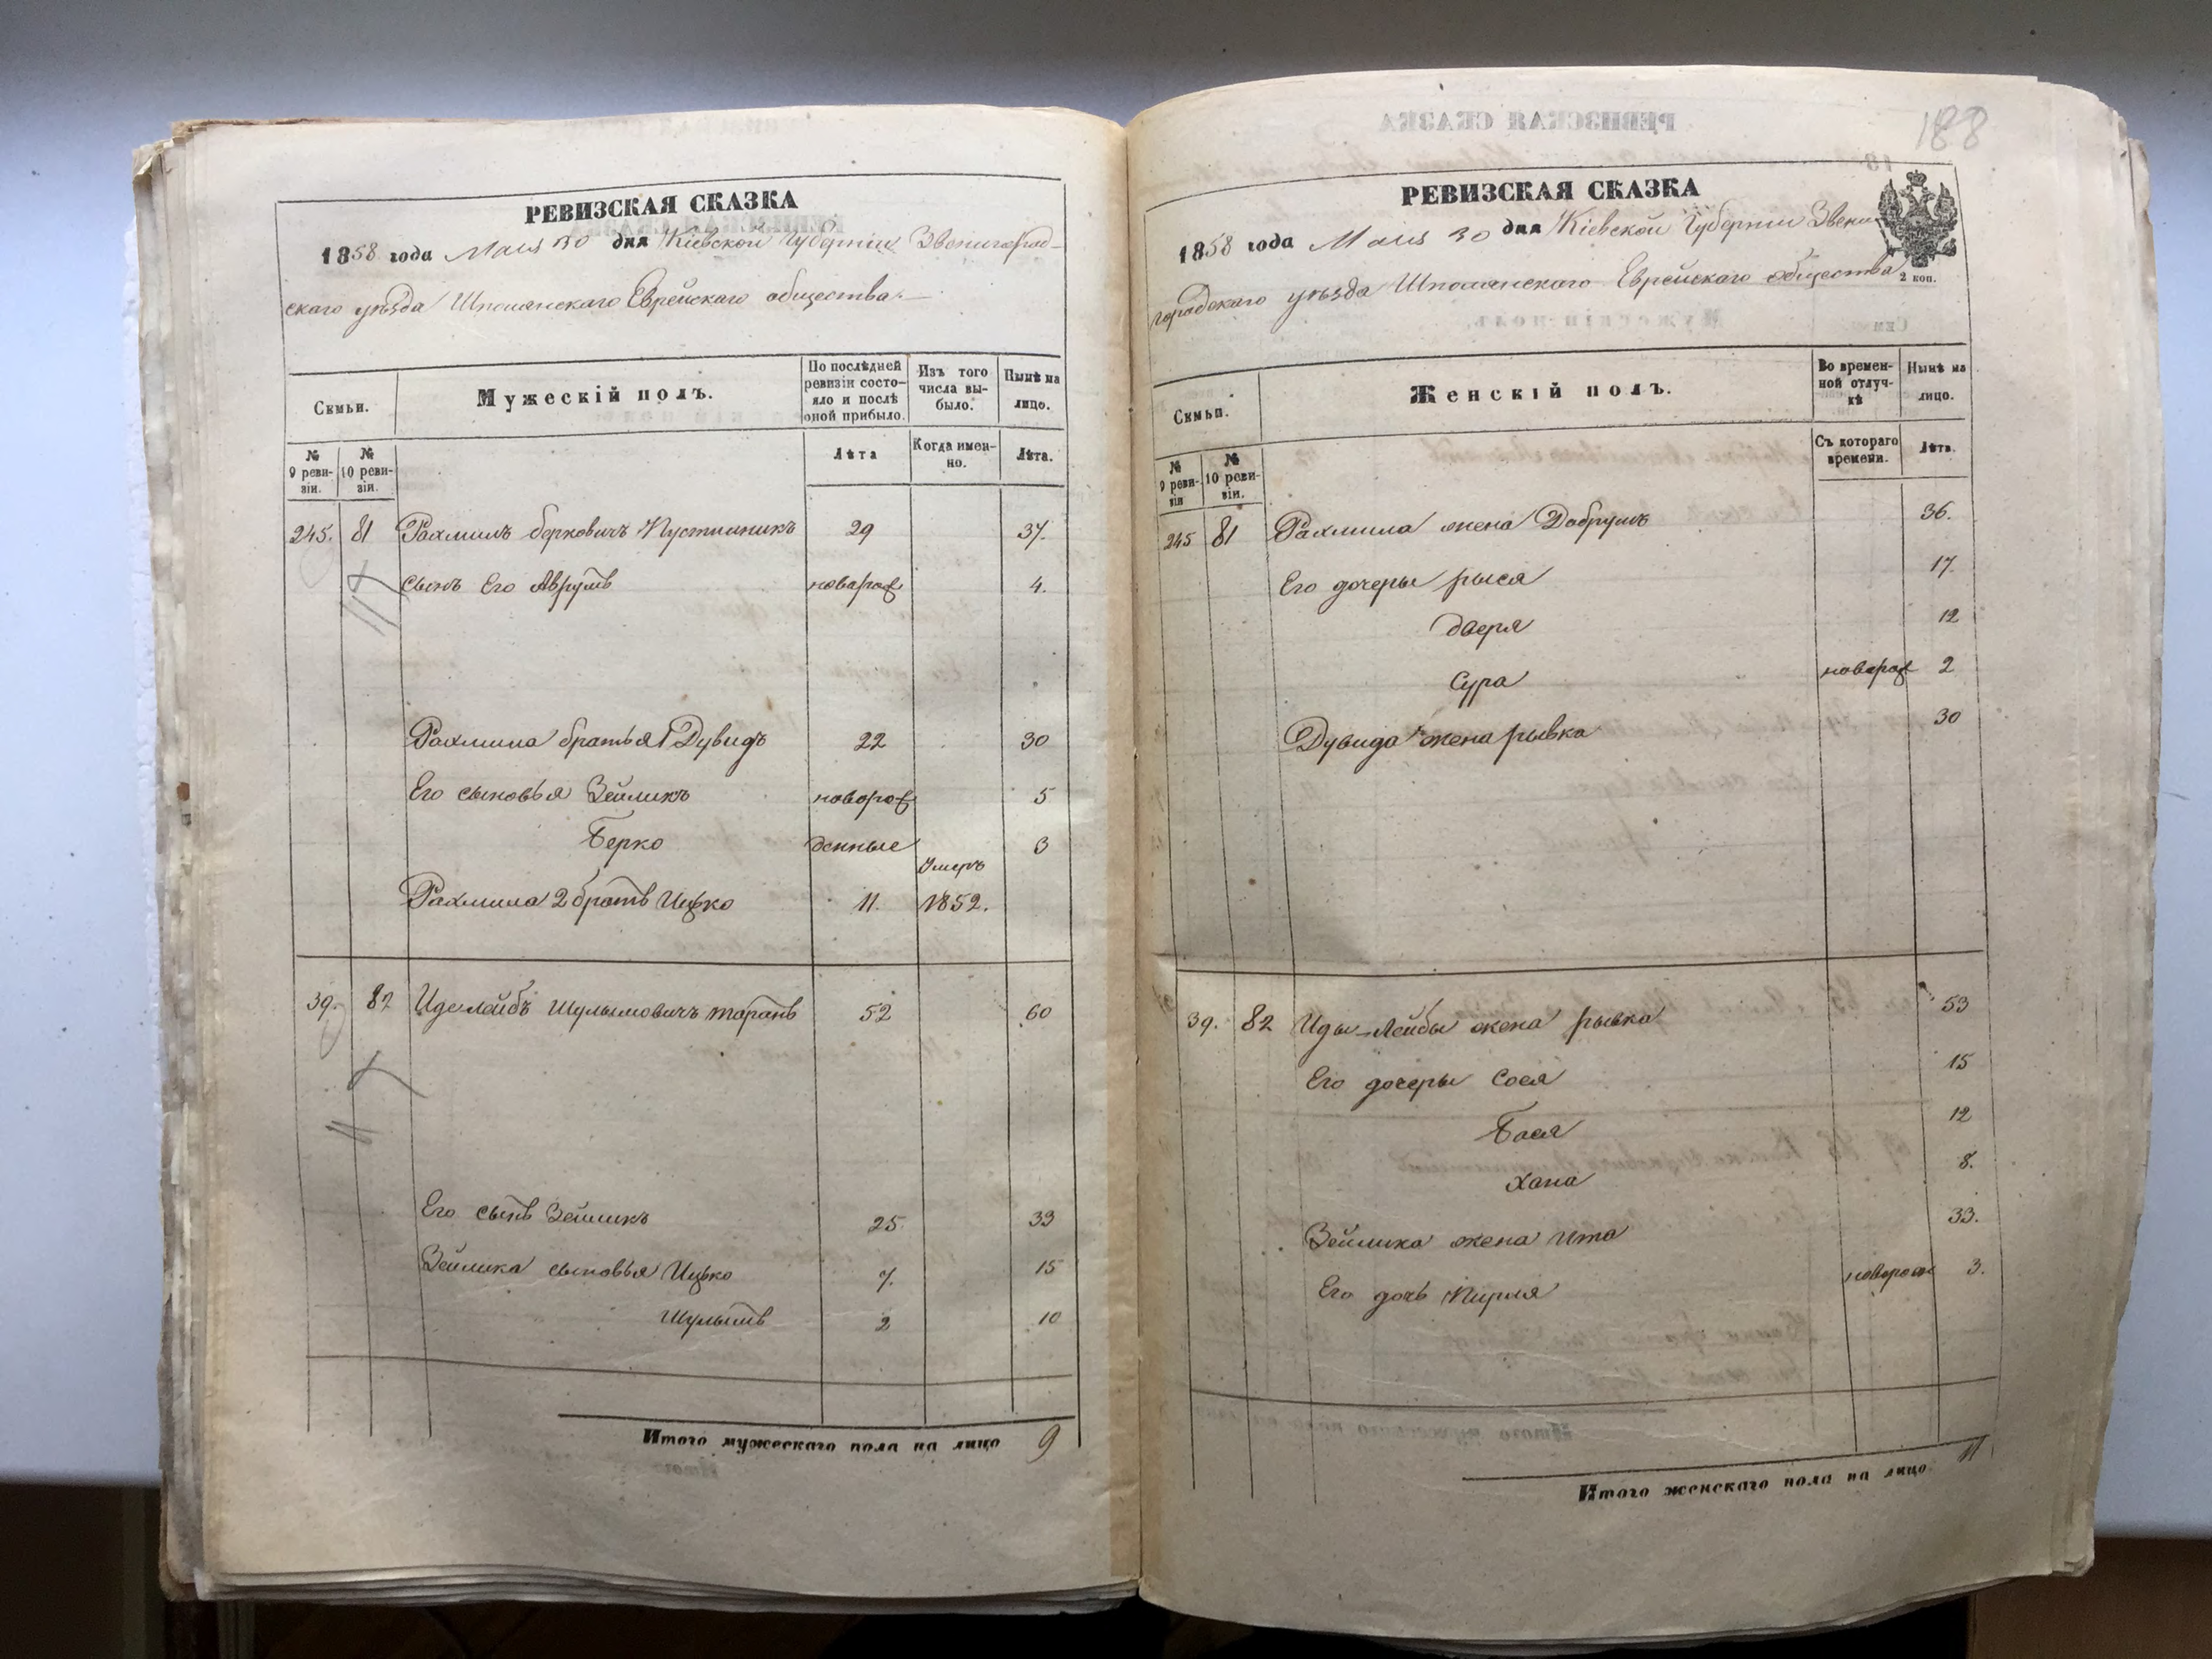 РЕВИЗСКАЯ СКАЗКА
1858 года Мая 30 дня Кіевской Губерніи Звенигород-
скаго уѣзда Шполянскаго Еврейскаго общества.
Семьи.
Мужескій полъ.
По послѣдней ревизіи состо-яло и послѣ оной прибыло.
Изъ того числа вы-было.
Нынѣ на лицо.
№ 9 реви-зіи.
№ 10 реви-зіи.
Лѣта
Когда имен-но.
Лѣта.
245. 81 Рахмиль берковичъ Пустильникъ 29 37.
сынъ Его Аврумъ новорож 4.
Рахмила братья 1 Дувидъ 22 30
Его сыновья Зейликъ новорож 5
Берко денные 3
Умеръ
Рахмила 2 братъ Ицько 11. 1852.
39. 82 Иделейбъ Шулымовичъ таранъ 52 60
Его сынъ Зейликъ 25 33
Зейлика сыновья Ицько 7. 15
Шулымъ 2 10
Итого мужескаго пола на лицо 9
188
РЕВИЗСКАЯ СКАЗКА
1858 года Мая 30 дня Кіевской Губерніи Звени-
городскаго уѣзда Шполянскаго Еврейскаго общества
2 коп.
Семьи.
Женскій полъ.
Во времен-ной отлуч-кѣ
Нынѣ на лицо.
№ 9 реви-зіи
№ 10 реви-зіи.
Съ котораго времени.
Лѣта.
245 81 Рахмила жена Добрушъ 36.
Его дочеры рыся 17.
дверя 12
Сура новорож 2
Дувида жена рывка 30
39. 82 Иды-Лейбы жена рывка 53
Его дочеры Сося 15
Бася 12
Хана 8.
Зейлика жена Ита 33.
Его дочь Пирля новорож 3.
Итого женскаго пола на лицо 11